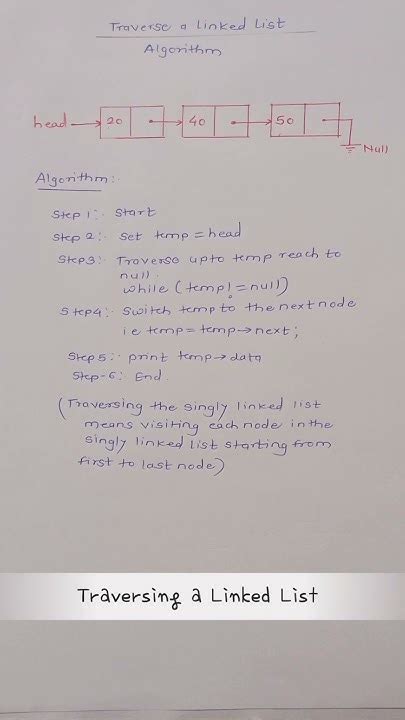 Traverse a linked List
Algorithm
head 20 40 50
Null
Algorithm:-
Step 1:- Start
Step 2:- Set temp = head
Step3:- Traverse upto temp reach to
null.
while (temp! = null)
Step4:- Switch temp to the next node
ie temp = temp→next;
Step 5:- print temp→data
Step-6: End.
(Traversing the singly linked list
means visiting each node in the
singly linked list starting from
first to last node)
Traversing a Linked List